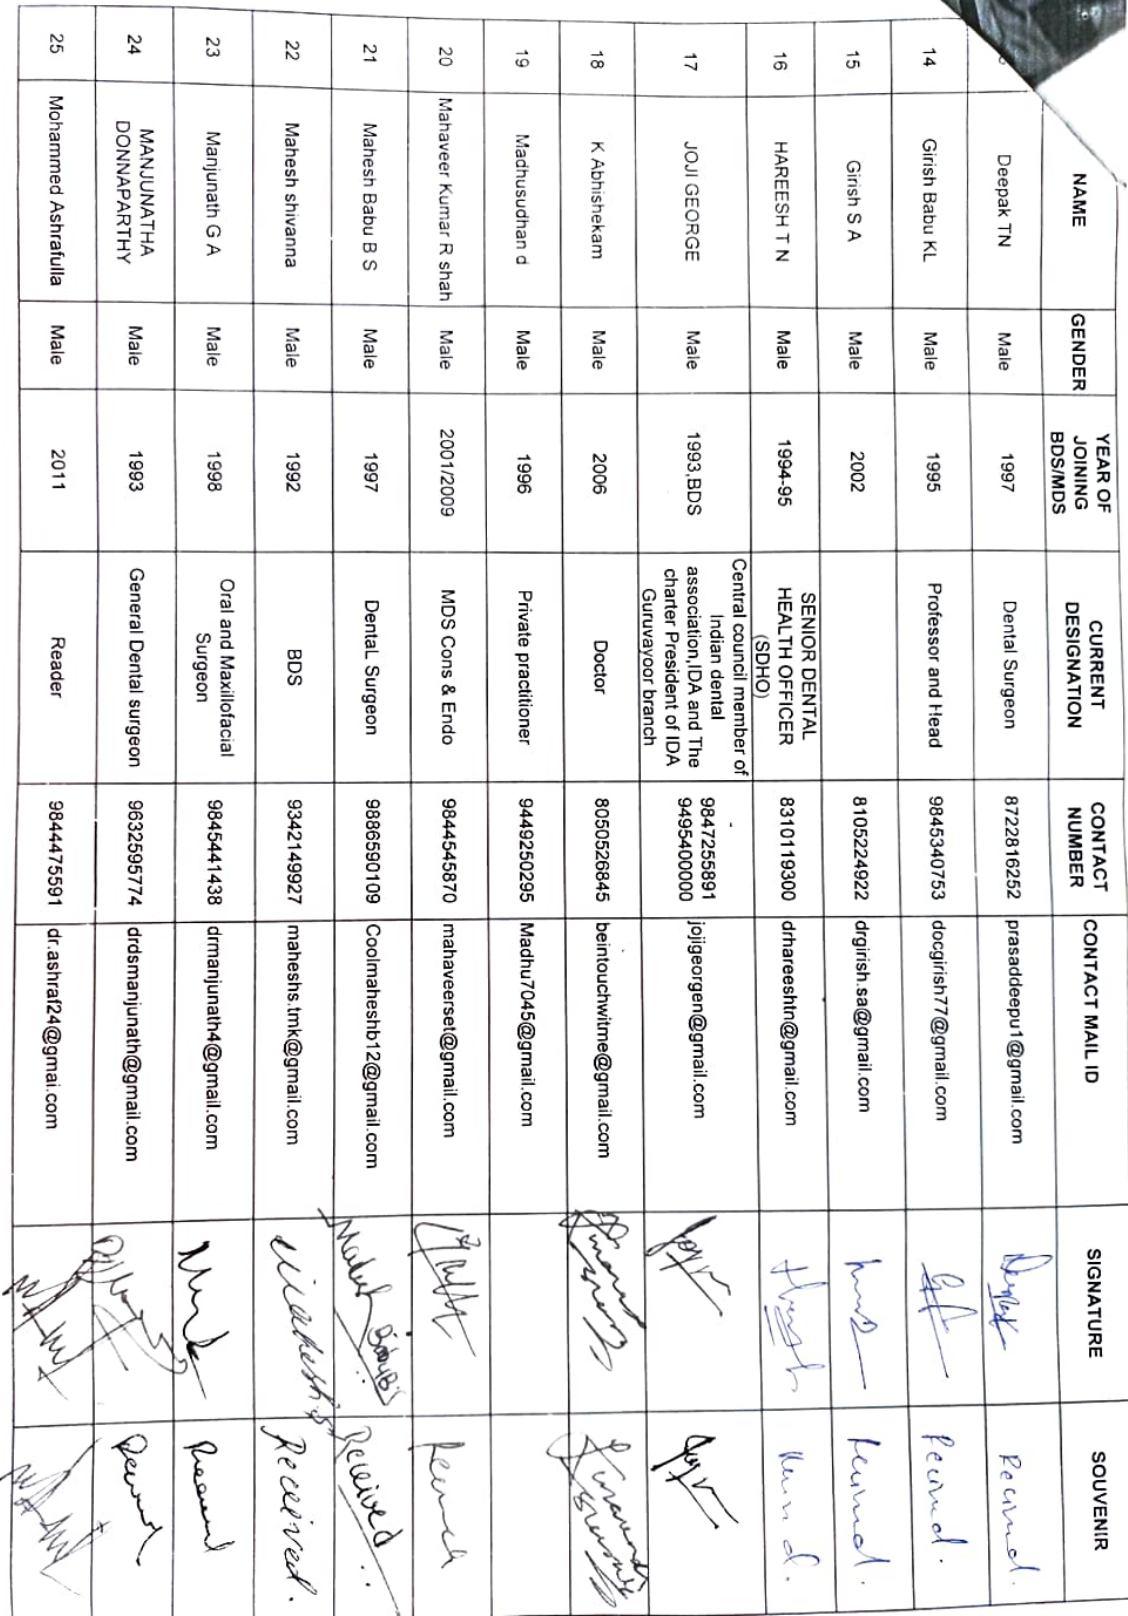 NAME GENDER YEAR OF JOINING BDS/MDS CURRENT DESIGNATION CONTACT NUMBER CONTACT MAIL ID SIGNATURE SOUVENIR
Deepak TN Male 1997 Dental Surgeon 8722816252 prasaddeepu1@gmail.com Deepak Received.
14 Girish Babu KL Male 1995 Professor and Head 9845340753 docgirish77@gmail.com Received.
15 Girish S A Male 2002 8105224922 drgirish.sa@gmail.com Received.
16 HAREESH T N Male 1994-95 SENIOR DENTAL HEALTH OFFICER (SDHO) 8310119300 drhareeshtn@gmail.com
17 JOJI GEORGE Male 1993,BDS Central council member of Indian dental association,IDA and The charter President of IDA Guruvayoor branch 9847255891 9495400000 jojigeorgen@gmail.com
18 K Abhishekam Male 2006 Doctor 8050526845 beintouchwitme@gmail.com
19 Madhusudhan d Male 1996 Private practitioner 9449250295 Madhu7045@gmail.com
20 Mahaveer Kumar R shah Male 2001/2009 MDS Cons & Endo 9844545870 mahaveerset@gmail.com
21 Mahesh Babu B S Male 1997 DentaL Surgeon 9886590109 Coolmaheshb12@gmail.com Received
22 Mahesh shivanna Male 1992 BDS 9342149927 maheshs.tmk@gmail.com Received.
23 Manjunath G A Male 1998 Oral and Maxillofacial Surgeon 9845441438 drmanjunath4@gmail.com
24 MANJUNATHA DONNAPARTHY Male 1993 General Dental surgeon 9632595774 drdsmanjunath@gmail.com
25 Mohammed Ashrafulla Male 2011 Reader 9844475591 dr.ashraf24@gmai.com